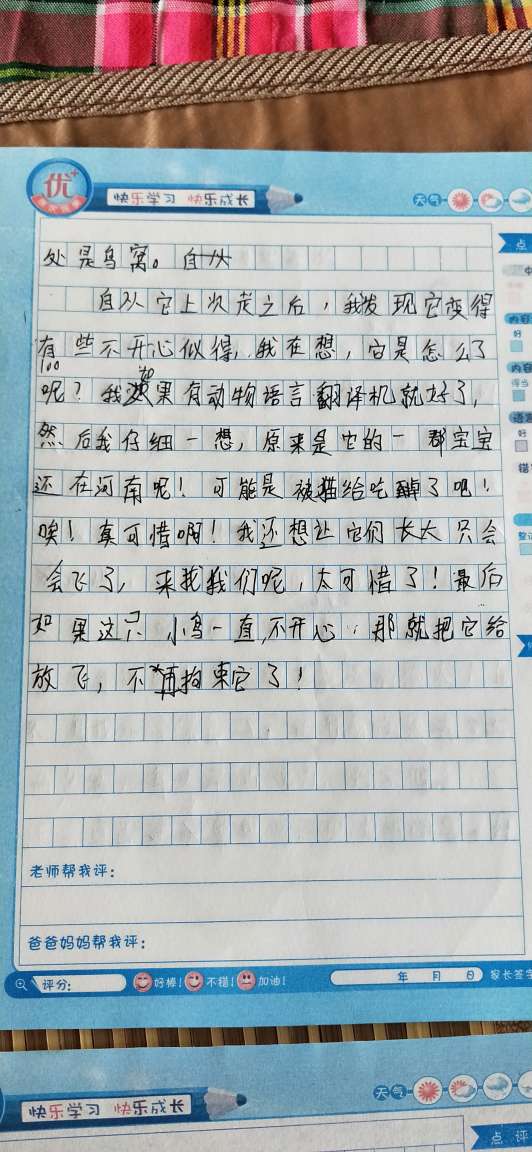 优+
快乐学习 快乐成长
天气
点
处是鸟窝。自从
自从它上次走之后，我发现它变得
有些不开心似得，我在想，它是怎么了
100
呢？我如果有动物语言翻译机就好了，
然后我仔细一想，原来是它的一群宝宝
还在河南呢！可能是被猫给吃掉了吧！
唉！真可惜啊！我还想让它们长大只会
会飞了，来找我们呢，太可惜了！最后
如果这只小鸟一直不开心，那就把它给
放飞，不再拘束它了！
内容
好
内容
得当
好
老师帮我评：
爸爸妈妈帮我评：
评分：
好棒！
不错！
加油！
年 月 日
家长签字
快乐学习 快乐成长
天气
点评